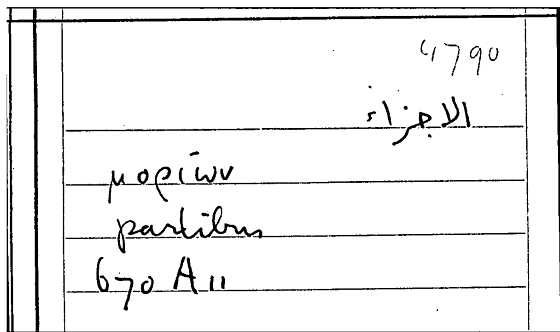 4790
الاجزاء
μορίων
partibus
670 A 11